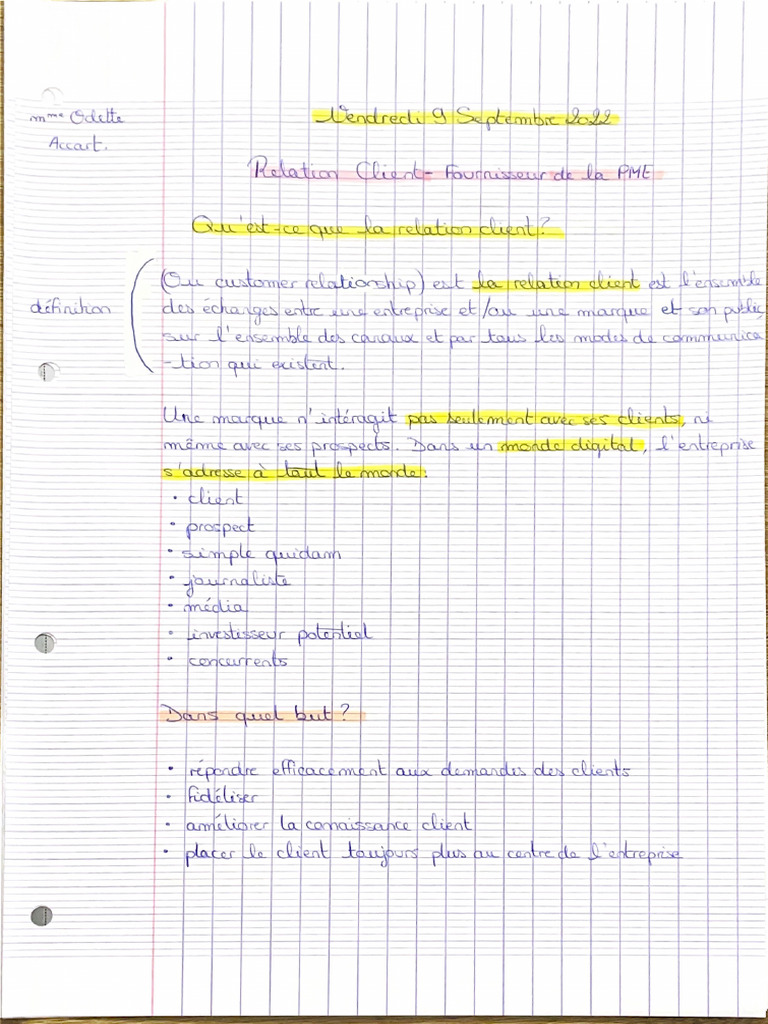 Mme Odette
Accart.
Vendredi 9 Septembre 2022
Relation Client - Fournisseur de la PME
Qu'est-ce que la relation client?
définition
(Ou customer relationship) est la relation client est l'ensemble
des échanges entre une entreprise et /ou une marque et son public
sur l'ensemble des canaux et par tous les modes de communica
-tion qui existent.
Une marque n'intéragit pas seulement avec ses clients, ni
même avec ses prospects. Dans un monde digital, l'entreprise
s'adresse à tout le monde:
• client
• prospect
• simple quidam
• journaliste
• média
• investisseur potentiel
• concurrents
Dans quel but?
• répondre efficacement aux demandes des clients
• fidéliser
• améliorer la connaissance client
• placer le client toujours plus au centre de l'entreprise